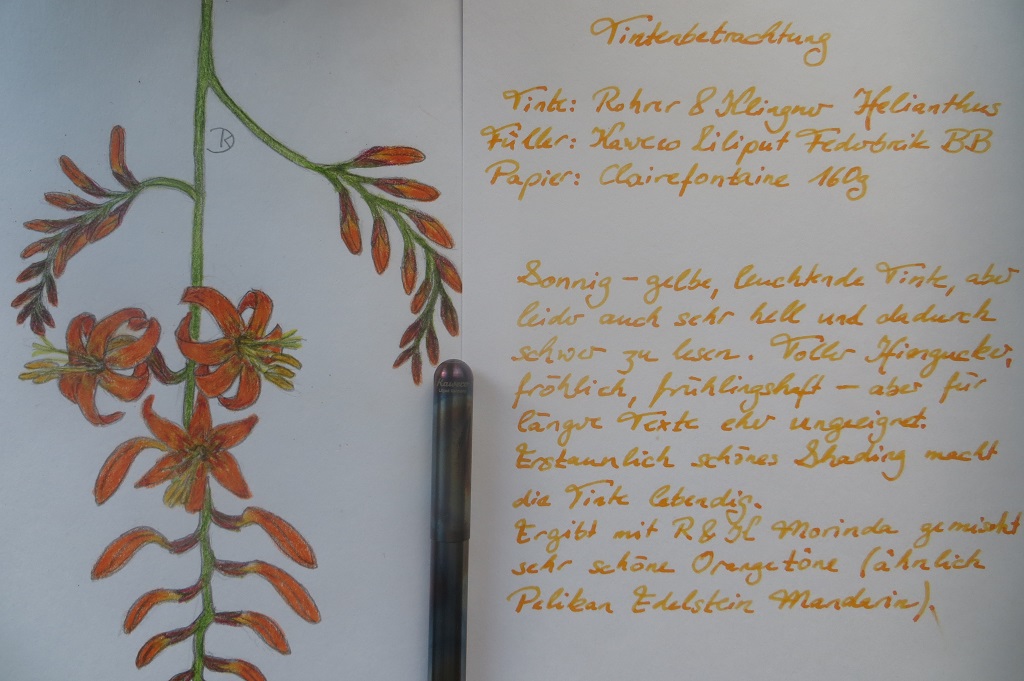 Tintenbetrachtung
Tinte: Rohrer & Klingner Helianthus
Füller: Kaweco Liliput Federbreite BB
Papier: Clairefontaine 160g
Sonnig – gelbe, leuchtende Tinte, aber
leider auch sehr hell und dadurch
schwer zu lesen. Toller Hingucker,
fröhlich, frühlingshaft – aber für
längere Texte eher ungeeignet.
Erstaunlich schönes Shading macht
die Tinte lebendig.
Ergibt mit R & Kl Morinda gemischt
sehr schöne Orangetöne (ähnlich
Pelikan Edelstein Mandarin).
Kaweco